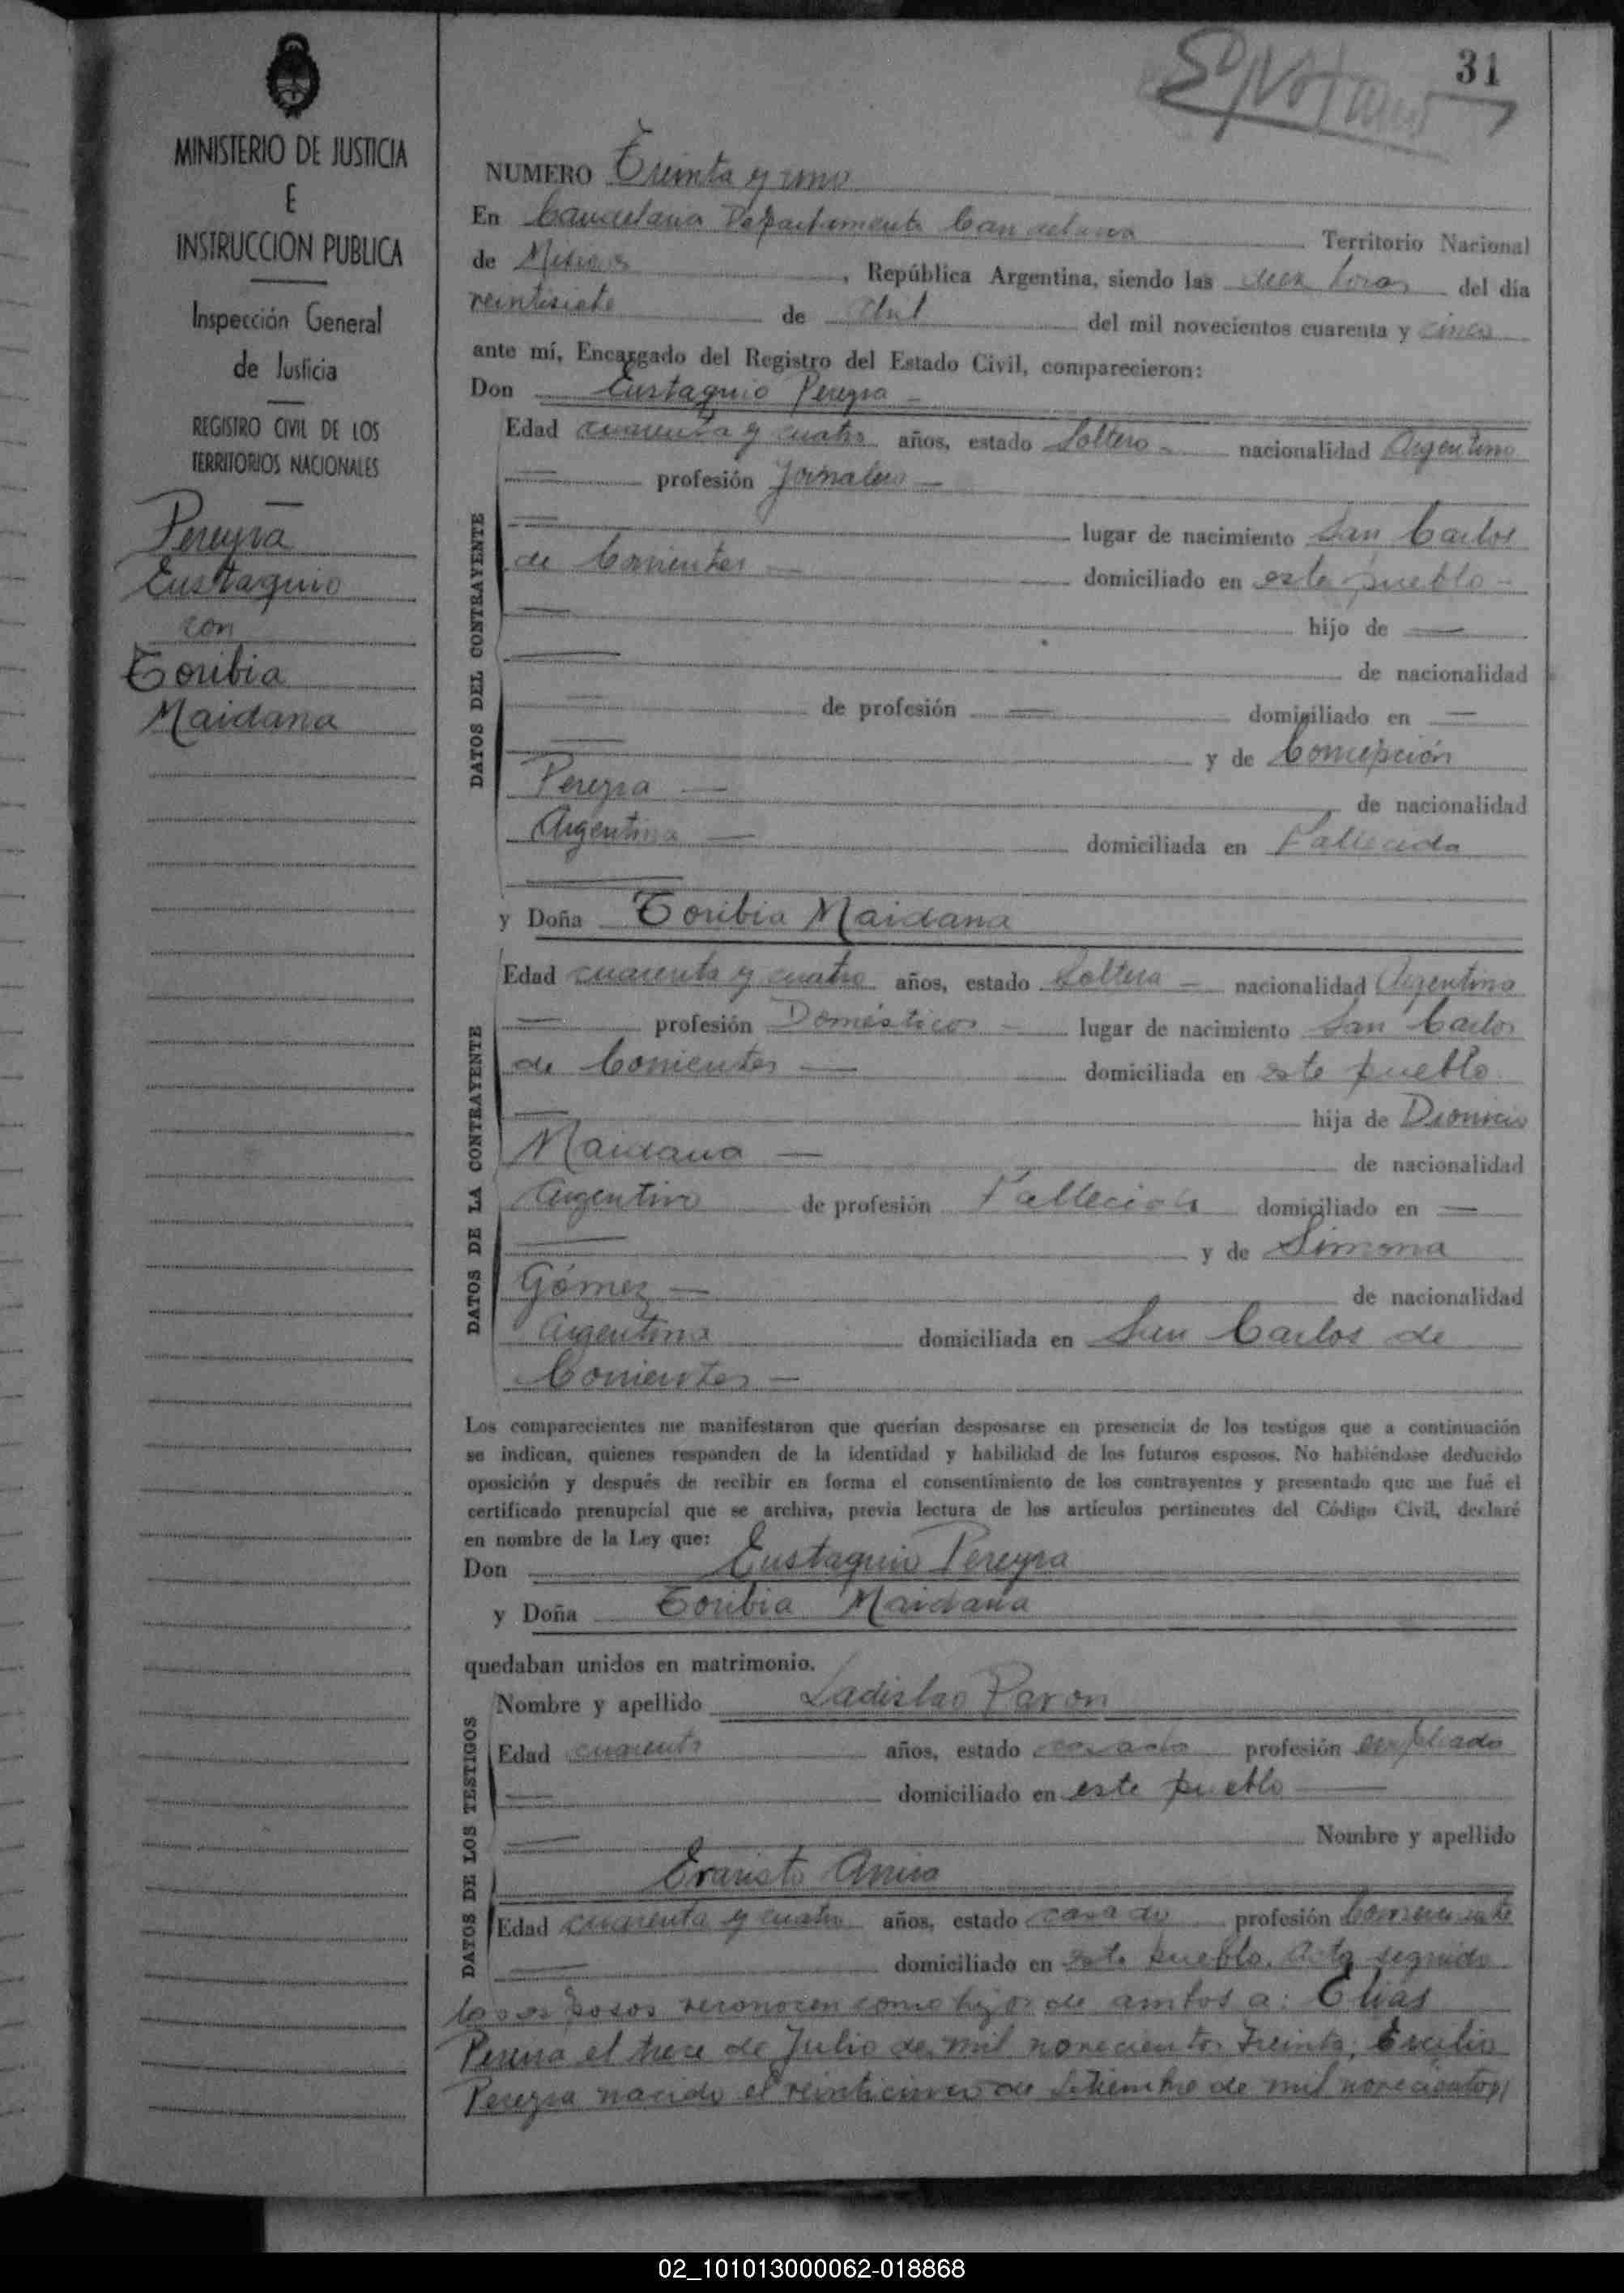 31
MINISTERIO DE JUSTICIA
E
INSTRUCCION PUBLICA
Inspección General
de Justicia
REGISTRO CIVIL DE LOS
TERRITORIOS NACIONALES
Pereyra
Eustaquio
con
Toribia
Maidana
NUMERO Treinta y uno
En Candelaria Departamento Candelaria Territorio Nacional
de Misiones, República Argentina, siendo las diez horas del día
veintisiete de Abril del mil novecientos cuarenta y cinco
ante mí, Encargado del Registro del Estado Civil, comparecieron:
Don Eustaquio Pereyra
DATOS DEL CONTRAYENTE
Edad cuarenta y cuatro años, estado Soltero nacionalidad Argentino
profesión Jornalero
lugar de nacimiento San Carlos
de Corrientes domiciliado en este pueblo
hijo de
de nacionalidad
de profesión domiciliado en
y de Concepción
Pereyra de nacionalidad
Argentina domiciliada en Fallecida
y Doña Toribia Maidana
DATOS DE LA CONTRAYENTE
Edad cuarenta y cuatro años, estado Soltera nacionalidad Argentina
profesión Domésticos lugar de nacimiento San Carlos
de Corrientes domiciliada en este pueblo
hija de Dionicio
Maidana de nacionalidad
Argentino de profesión Fallecido domiciliado en
y de Simona
Gómez de nacionalidad
Argentina domiciliada en San Carlos de
Corrientes
Los comparecientes me manifestaron que querían desposarse en presencia de los testigos que a continuación
se indican, quienes responden de la identidad y habilidad de los futuros esposos. No habiéndose deducido
oposición y después de recibir en forma el consentimiento de los contrayentes y presentado que me fué el
certificado prenupcial que se archiva, previa lectura de los artículos pertinentes del Código Civil, declaré
en nombre de la Ley que:
Don Eustaquio Pereyra
y Doña Toribia Maidana
quedaban unidos en matrimonio.
DATOS DE LOS TESTIGOS
Nombre y apellido Ladislao Pavon
Edad cuarenta años, estado casado profesión empleado
domiciliado en este pueblo
Nombre y apellido
Evaristo
Edad cuarenta y cuatro años, estado casado profesión Comerciante
domiciliado en este pueblo. Acto seguido
los esposos reconocen como hijos de ambos a: Elias
Pereyra el trece de Julio de mil novecientos treinta;
Pereyra nacido el veinticinco de Setiembre de mil novecientos
02_101013000062-018868